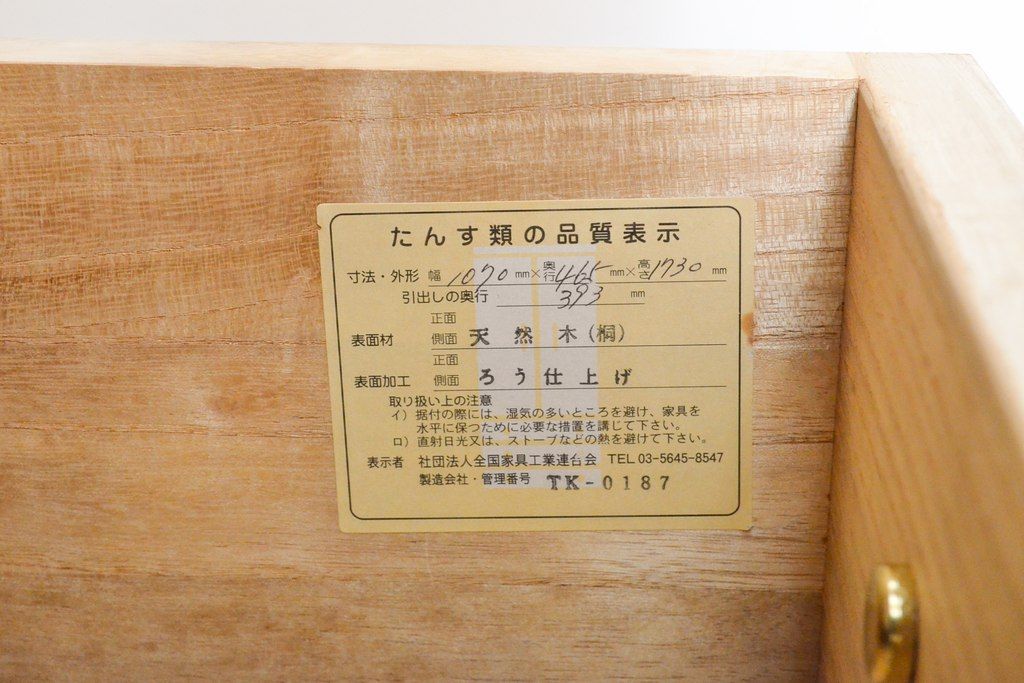 たんす類の品質表示
寸法・外形 幅 1070 mm×奥行 465 mm×高さ 1730 mm
引出しの奥行 393 mm
正面
表面材 側面 天然木(桐)
正面
表面加工 側面 ろう仕上げ
取り扱い上の注意
イ）据付の際には、湿気の多いところを避け、家具を
水平に保つために必要な措置を講じて下さい。
ロ）直射日光又は、ストーブなどの熱を避けて下さい。
表示者 社団法人全国家具工業連合会 TEL 03-5645-8547
製造会社・管理番号 TK-0187